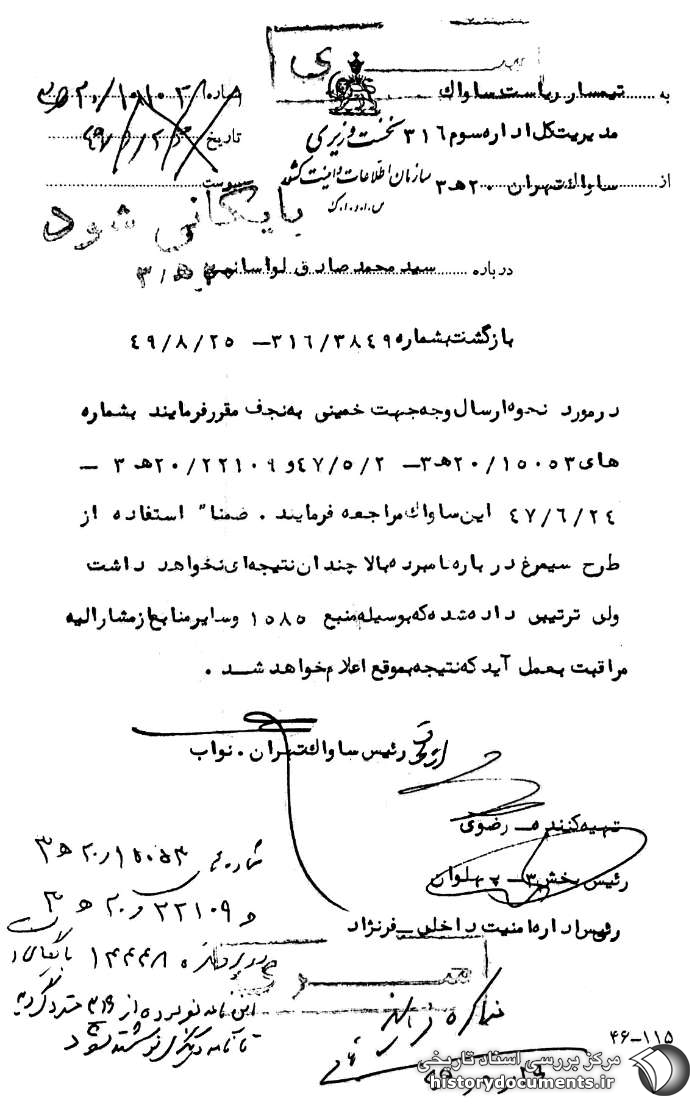 سری
به تیمسار ریاست ساواک
شماره ۲۰/۱۰۱۰۲
مدیریت کل اداره سوم ۳۱۶
نخست وزیری
تاریخ
از ساواک تهران ۲۰ هـ ۳
سازمان اطلاعات و امنیت کشور
س.ا.و.ا.ک
پیوست
بایگانی شود
درباره سید محمد صادق لواسانی
بازگشت بشماره ۳۱۶/۳۸۴۹ – ۴۹/۸/۲۵
در مورد نحوه ارسال وجه جهت خمینی به نجف مقرر فرمایند بشماره
های ۲۰/۱۵۰۵۳هـ۳ – ۴۷/۵/۲ و ۲۰/۲۲۱۰۹هـ ۳ –
۴۷/۶/۲۴ این ساواک مراجعه فرمایند . ضمنا" استفاده از
طرح سیمرغ درباره نامبرده بالا چندان نتیجه‌ای نخواهد داشت
ولی ترتیبی داده شده که بوسیله منبع ۱۵۸۵ و سایر منابع از مشارالیه
مراقبت بعمل آید که نتیجه بموقع اعلام خواهد شد .
رئیس ساواک تهران . نواب
تهیه کننده – رضوی
رئیس بخش ۳ – پهلوان
رئیس اداره امنیت داخلی – فرنژاد
شماره های ۲۰/۱۵۰۵۳ هـ ۳
و ۲۰/۲۲۱۰۹ هـ ۳
در پرونده ۱۴۴۴۸ بایگانی
این نامه
سری
۴۶-۱۱۵
مرکز بررسی اسناد تاریخی
historydocuments.ir